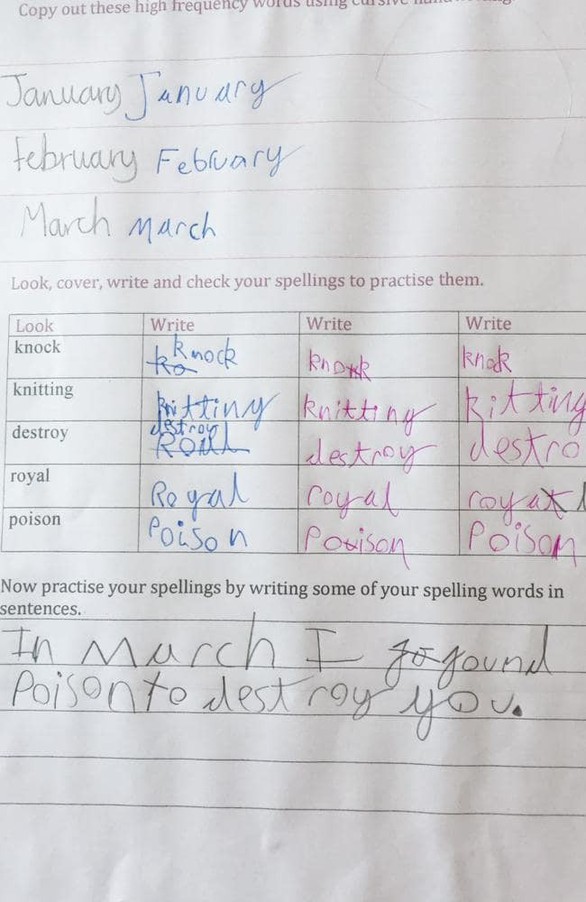 Copy out these high frequency words using cursive
January January
February February
March March
Look, cover, write and check your spellings to practise them.
Look Write Write Write
knock ko knock knock knok
knitting kittiny knitting kitting
destroy destroy destroy destro
royal Royal royal royal
poison Poison Poison Poison
Now practise your spellings by writing some of your spelling words in
sentences.
In March I fo found
Poison to destroy you.